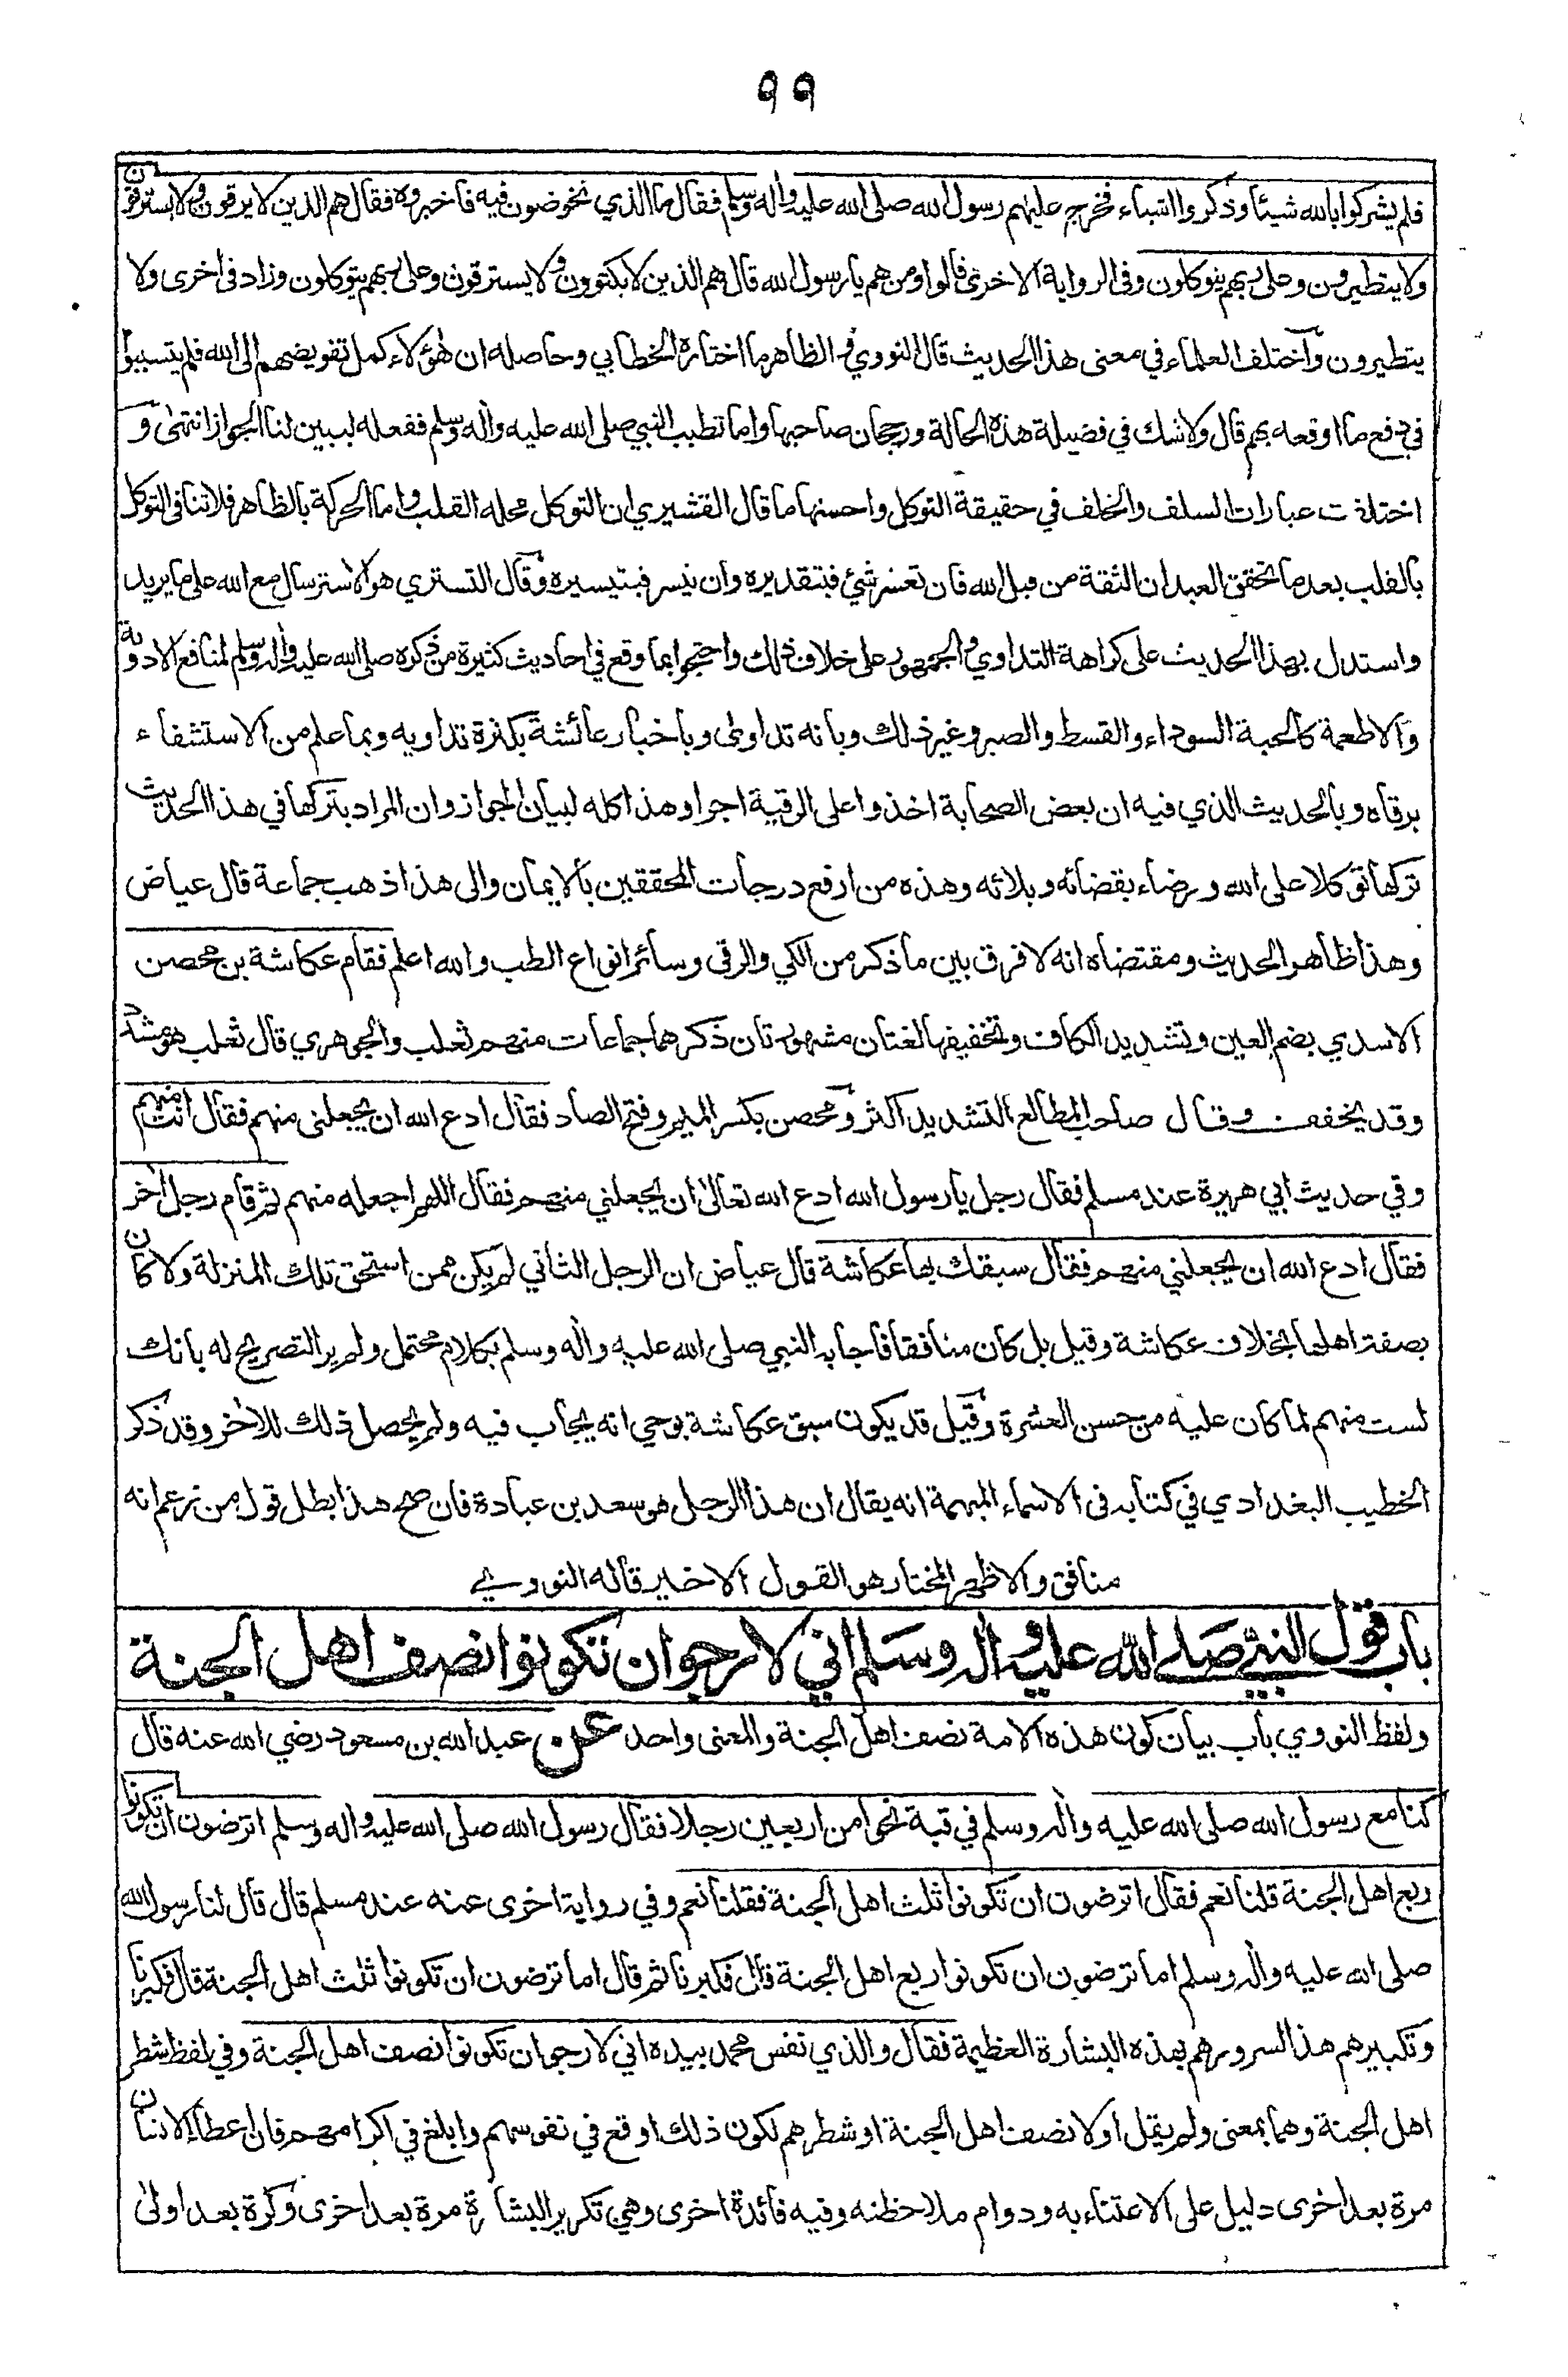 ٩٩
فلم يشركوا بالله شيئا وذكروا اشياء فخرج عليهم رسول الله صلى الله عليه وأله وسلم فقال ما الذي تخوضون فيه فاخبروه فقال هم الذين لا يرقون ولا يسترقون
ولا يتطيرون وعلى ربهم يتوكلون وفى الرواية الاخرى قالوا ومن هم يا رسول الله قال هم الذين لا يكتوون ولا يسترقون وعلى ربهم يتوكلون وزاد فى اخرى ولا
يتطيرون واختلف العلماء في معنى هذا الحديث قال النووي والظاهر ما اختاره الخطابي وحاصله ان هؤلاء كمل تفويضهم الى الله فلم يتسببوا
في دفع ما اوقعه بهم قال ولا شك في فضيلة هذه الحالة ورجحان صاحبها واما تطبب النبي صلى الله عليه واله وسلم ففعله ليبين لنا الجواز انتهى و
اختلفت عبارات السلف والخلف في حقيقة التوكل واحسنها ما قال القشيري ان التوكل محله القلب واما الحركة بالظاهر فلا تنافى التوكل
بالقلب بعد ما تحقق العبد ان الثقة من قبل الله فان تعسر شئ فبتقديره وان تيسر فبتيسيره وقال التستري هو الاسترسال مع الله على ما يريد
واستدل بهذا الحديث على كراهة التداوي والجمهور على خلاف ذلك واحتجوا بما وقع في احاديث كثيرة من ذكره صلى الله عليه واله وسلم لمنافع الادوية
والاطعمة كالحبة السوداء والقسط والصبر وغير ذلك وبانه تداوى وباخبار عائشة بكثرة تداويه وبما علم من الاستشفاء
برقاه وبالحديث الذي فيه ان بعض الصحابة اخذوا على الرقية اجرا وهذا كله لبيان الجواز وان المراد بتركها في هذا الحديث
تركها توكلا على الله ورضاء بقضائه وبلائه وهذه من ارفع درجات المحققين بالايمان والى هذا ذهب جماعة قال عياض
وهذا ظاهر الحديث ومقتضاه انه لا فرق بين ما ذكر من الكي والرقى وسائر انواع الطب والله اعلم فقام عكاشة بن محصن
الاسدي بضم العين وتشديد الكاف وتخفيفها لغتان مشهورتان ذكرهما جماعات منهم ثعلب والجوهري قال ثعلب هو مشدد
وقد يخفف وقال صاحب المطالع التشديد اكثر ومحصن بكسر الميم وفتح الصاد فقال ادع الله ان يجعلنى منهم فقال انت منهم
وفي حديث ابي هريرة عند مسلم فقال رجل يا رسول الله ادع الله تعالى ان يجعلني منهم فقال اللهم اجعله منهم ثم قام رجل أخر
فقال ادع الله ان يجعلني منهم فقال سبقك بها عكاشة قال عياض ان الرجل الثاني لم يكن ممن استحق تلك المنزلة ولا كان
بصفة اهلها بخلاف عكاشة وقيل بل كان منافقا فاجابه النبي صلى الله عليه واله وسلم بكلام محتمل ولم ير التصريح له بانك
لست منهم لما كان عليه من حسن العشرة وقيل قد يكون سبق عكاشة بوحي انه يجاب فيه ولم يحصل ذلك للاخر وقد ذكر
الخطيب البغدادي في كتابه فى الاسماء المبهمة انه يقال ان هذا الرجل هو سعد بن عبادة فان صح هذا بطل قول من زعم انه
منافق والاظهر المختار هو القول الاخير قاله النووي
باب قول النبي صلى الله عليه واله وسلم اني لارجو ان تكونوا نصف اهل الجنة
ولفظ النووي باب بيان كون هذه الامة نصف اهل الجنة والمعنى واحد عن عبد الله بن مسعود رضي الله عنه قال
كنا مع رسول الله صلى الله عليه واله وسلم في قبة نحوا من اربعين رجلا فقال رسول الله صلى الله عليه واله وسلم اترضون ان تكونوا
ربع اهل الجنة قلنا نعم فقال اترضون ان تكونوا ثلث اهل الجنة فقلنا نعم وفي رواية اخرى عنه عند مسلم قال قال لنا رسول الله
صلى الله عليه واله وسلم اما ترضون ان تكونوا ربع اهل الجنة قال فكبرنا ثم قال اما ترضون ان تكونوا ثلث اهل الجنة قال فكبرنا
وتكبيرهم هذا لسرورهم بهذه البشارة العظيمة فقال والذي نفس محمد بيده اني لارجو ان تكونوا نصف اهل الجنة وفي لفظ شطر
اهل الجنة وهما بمعنى ولم يقل اولا نصف اهل الجنة او شطرهم لكون ذلك اوقع في نفوسهم وابلغ في اكرامهم فان اعطاء الانسان
مرة بعد اخرى دليل على الاعتناء به ودوام ملاحظته وفيه فائدة اخرى وهي تكرير البشارة مرة بعد اخرى وكرة بعد اولى